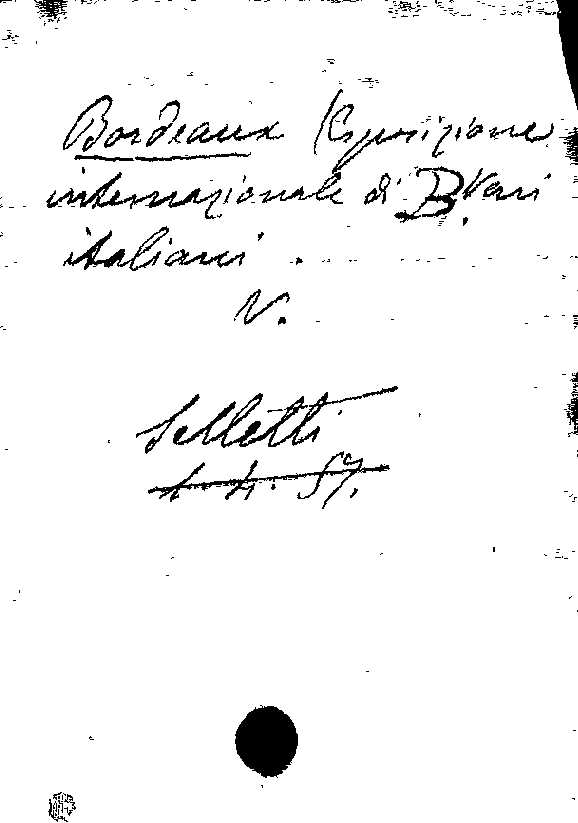 Bordeaux (Esposizione
internazionale di B. Vari
italiani.
V.
Selletti
1. 4. 57.